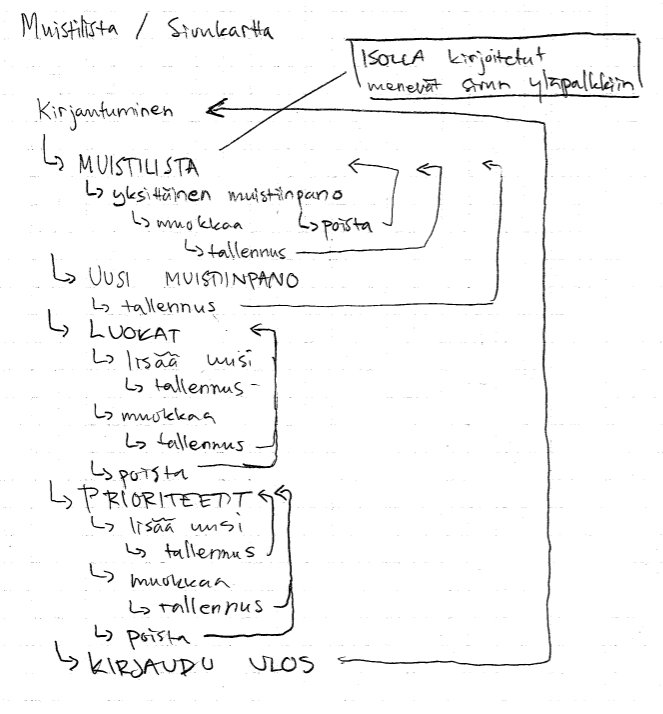 Muistilista / Sivukartta
ISOLLA kirjoitetut
menevät sivun yläpalkkiin
Kirjautuminen
MUISTILISTA
yksittäinen muistiinpano
muokkaa
poista
tallennus
UUSI MUISTIINPANO
tallennus
LUOKAT
lisää uusi
tallennus
muokkaa
tallennus
poista
PRIORITEETIT
lisää uusi
tallennus
muokkaa
tallennus
poista
KIRJAUDU ULOS